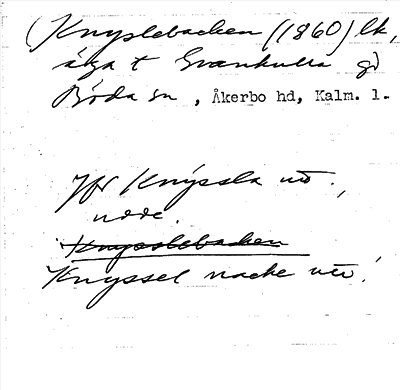 (Knyslebacken (1860) lk,
äga t Svankulla gd
Böda sn, Åkerbo hd, Kalm. l.
Jfr Knyssla utt.,
Knysslebacken
Knyssel backe utt.!